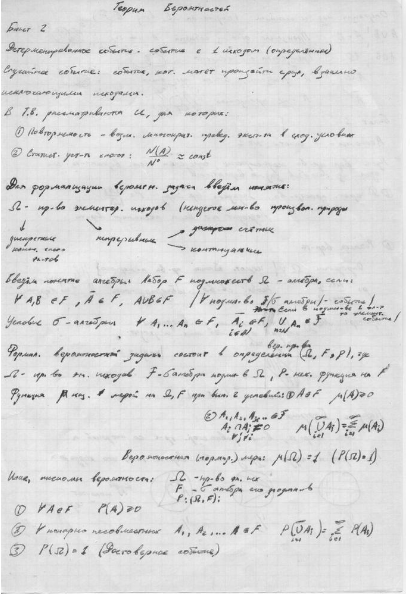 Теория Вероятностей
Билет 2
Детерминированное событие - событие с 1 исходом (определённое)
Случайное событие: событие, кот. может произойти одно, взаимно
исключающими исходами.
В Т.В. рассматриваются для которых:
① Повторяемость - возм. многократ. провед. экспер. в след. условиях
② Статист. уст-ть частот: N(A)/N° ≃ const
Для формализации вероятн. задач введём понятие:
Ω - пр-во элементар. исходов (непустое мн-во произвол. природы
дискретные непрерывные счётные
континуальные
Введём понятие алгебры: Набор F подмножеств Ω - алгебра, если:
∀ A,B ∈ F, A̅ ∈ F, A∪B ∈ F
Условие σ - алгебры ∀ A₁...Aₙ ∈ F,
вер. пр-ва
Формал. вероятностной задачи состоит в определении (Ω, F, P), где
Ω - пр-во эл. исходов F - σ алгебра подмн-в Ω, P - нек. функция на F
Функция μ наз. мерой на Ω, F при вып. 2 условий: ① A∈F μ(A)≥0
② A₁,A₂,A₃... ∈ F
Aᵢ ∩ Aⱼ ≠ 0 μ(∪Aᵢ) = Σ μ(Aᵢ)
∀i,j
Вероятностная (нормир.) мера: μ(Ω) = 1 (P(Ω)=1)
Итак, аксиомы вероятности: Ω - пр-во эл. исх
F - σ алгебра его подмн-в
P: (Ω, F):
① ∀ A∈F P(A)≥0
② ∀ попарно несовместных A₁, A₂ ... A ∈ F P(∪Aᵢ) = Σ P(Aᵢ)
③ P(Ω) = 1 (Достоверное событие)